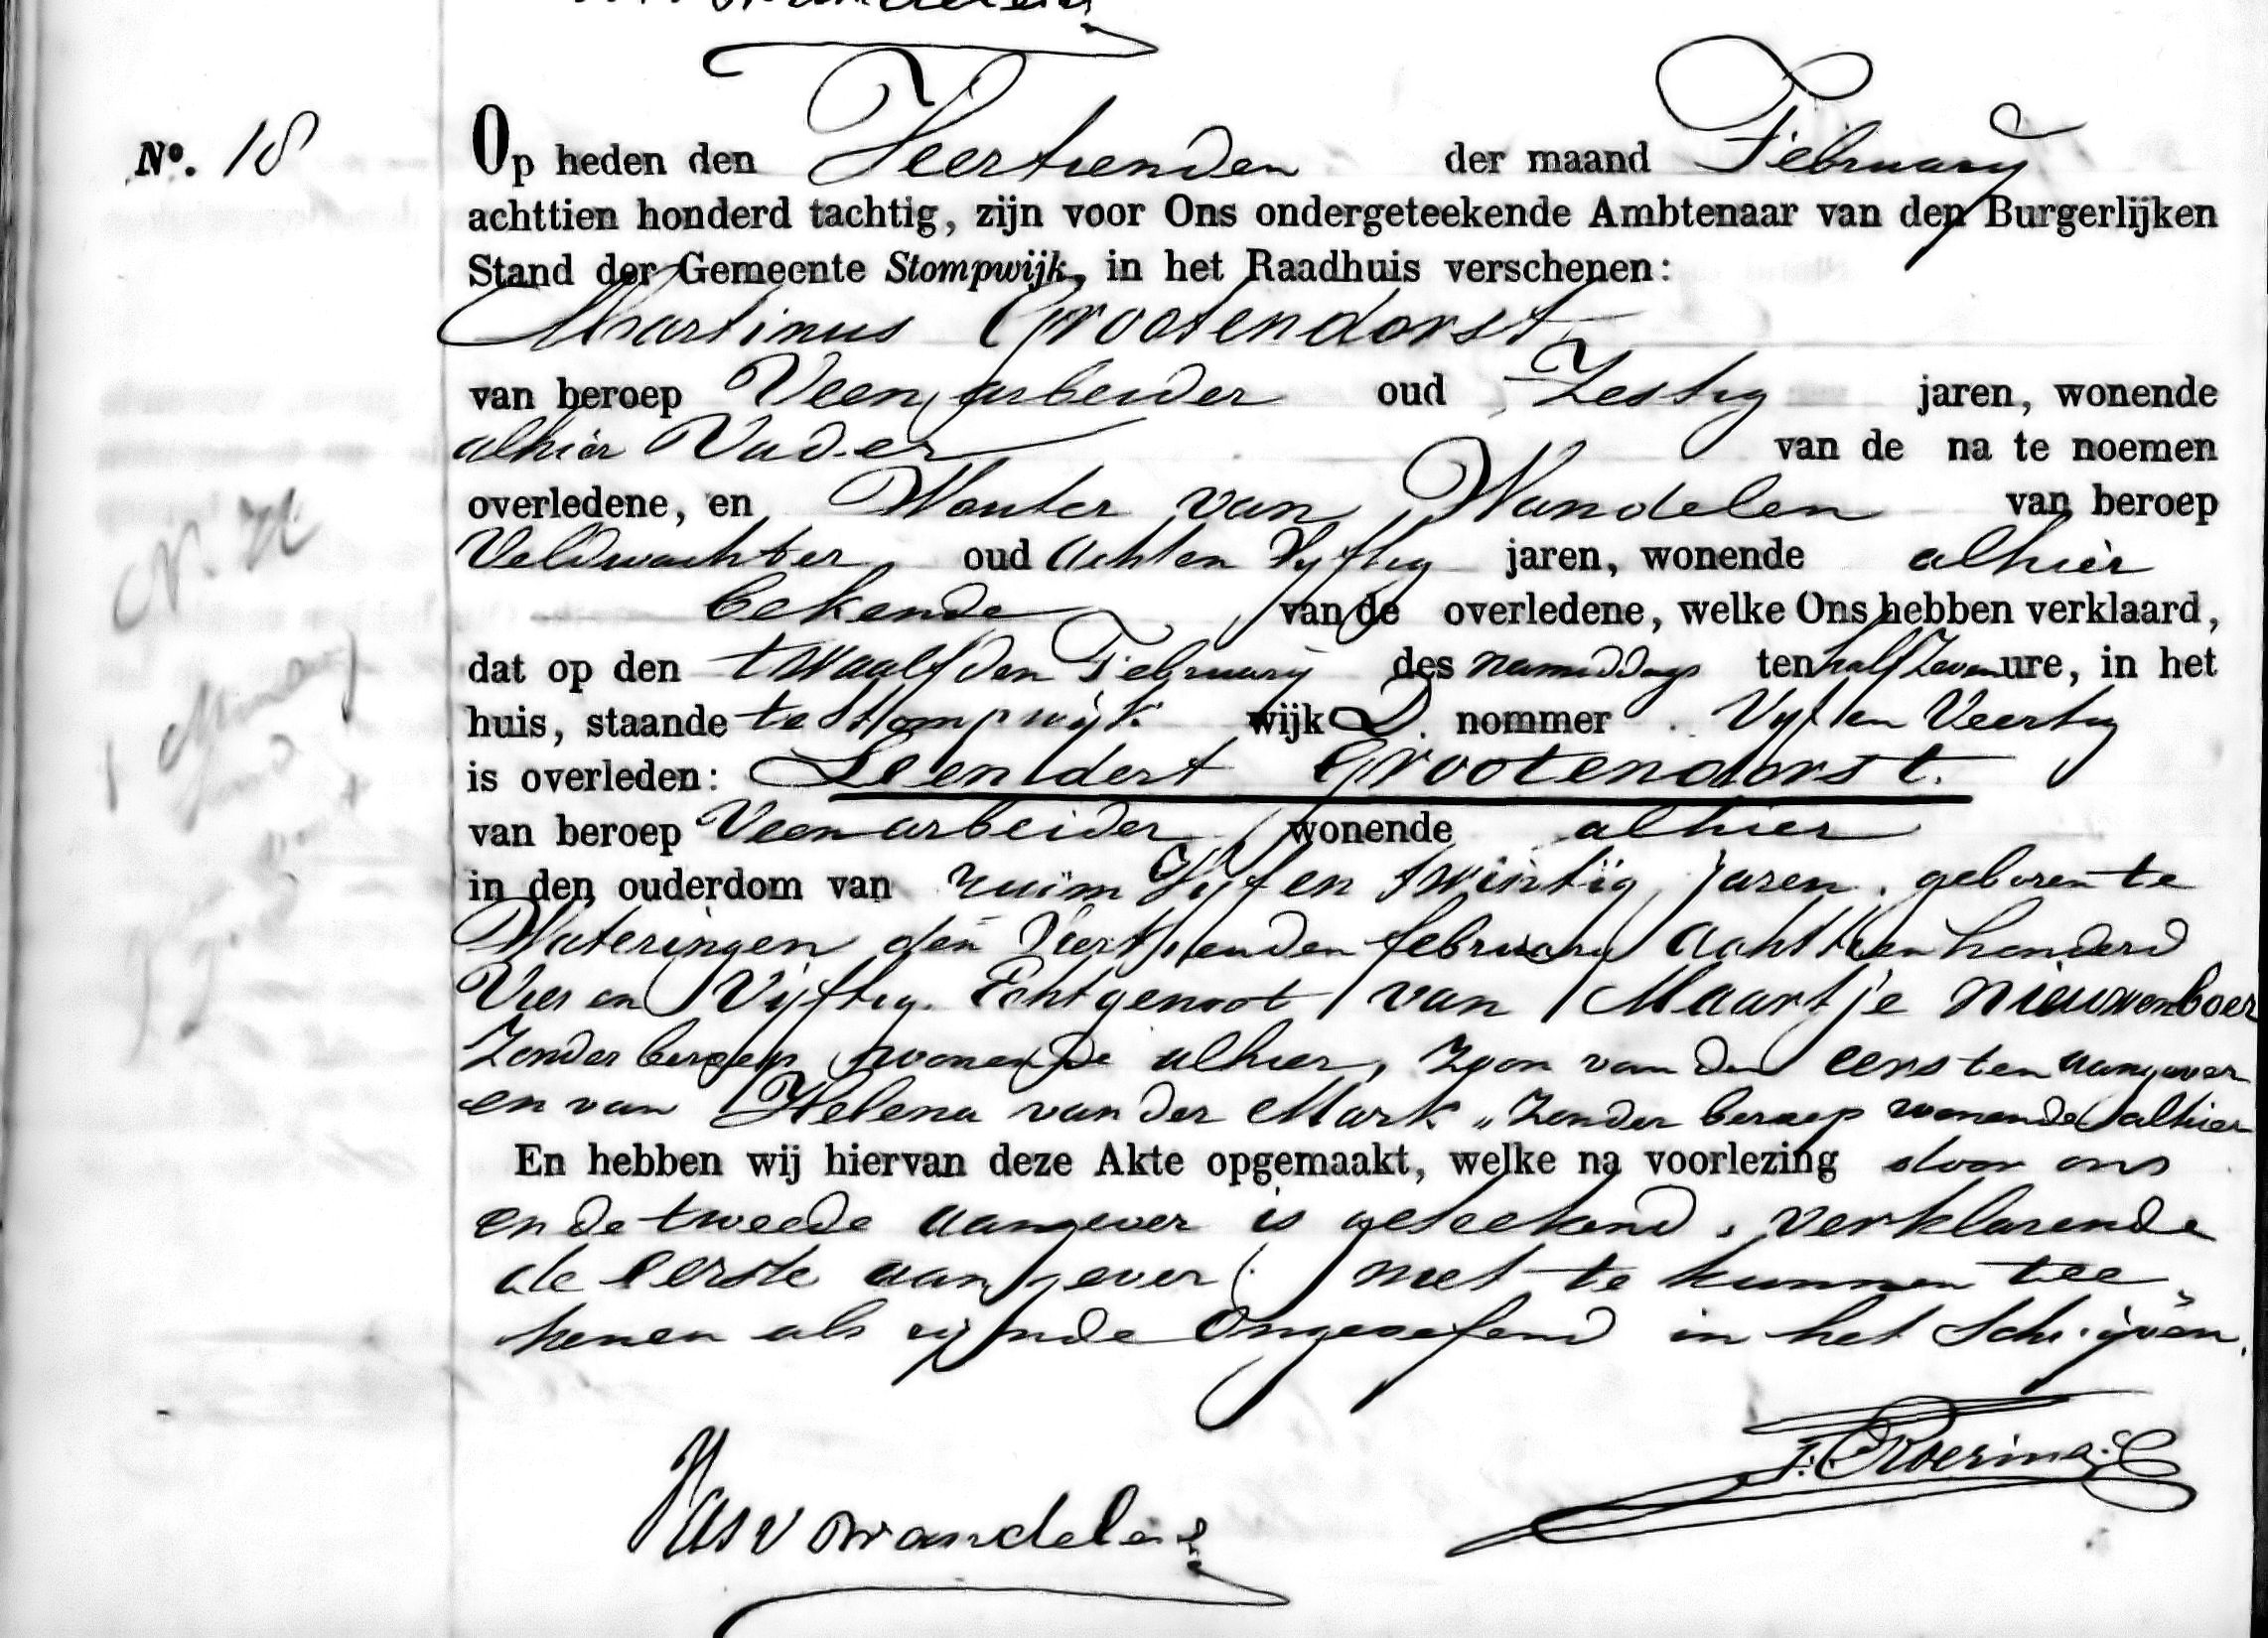 No. 18
Op heden den Veertienden der maand February
achttien honderd tachtig, zijn voor Ons ondergeteekende Ambtenaar van den Burgerlijken
Stand der Gemeente Stompwijk, in het Raadhuis verschenen:
Martinus Grootendorst
van beroep Veenarbeider oud Zestig jaren, wonende
alhier Vader van de na te noemen
overledene, en Wouter van Wandelen van beroep
Veldwachter oud Acht en Vyftig jaren, wonende alhier
bekende van de overledene, welke Ons hebben verklaard,
dat op den twaalfden February des namiddags ten half Zeven ure, in het
huis, staande te Stompwijk wijk D. nommer Vyf en Veertig
is overleden: Leendert Grootendorst.
van beroep Veenarbeider wonende alhier
in den ouderdom van ruim Vijf en twintig jaren. geboren te
Wateringen den Veertienden february achttienhonderd
Vier en Vijftig. Echtgenoot van Maartje Nieuwenboer
Zonder beroep wonende alhier, Zoon van den eersten aangever
en van Helena van der Mark „ Zonder beroep wonende alhier
En hebben wij hiervan deze Akte opgemaakt, welke na voorlezing door ons
en de tweede aangever is geteekend, verklarende
de eerste aangever niet te kunnen tee„
kenen als zijnde Ongeoefend in het Schrijven.